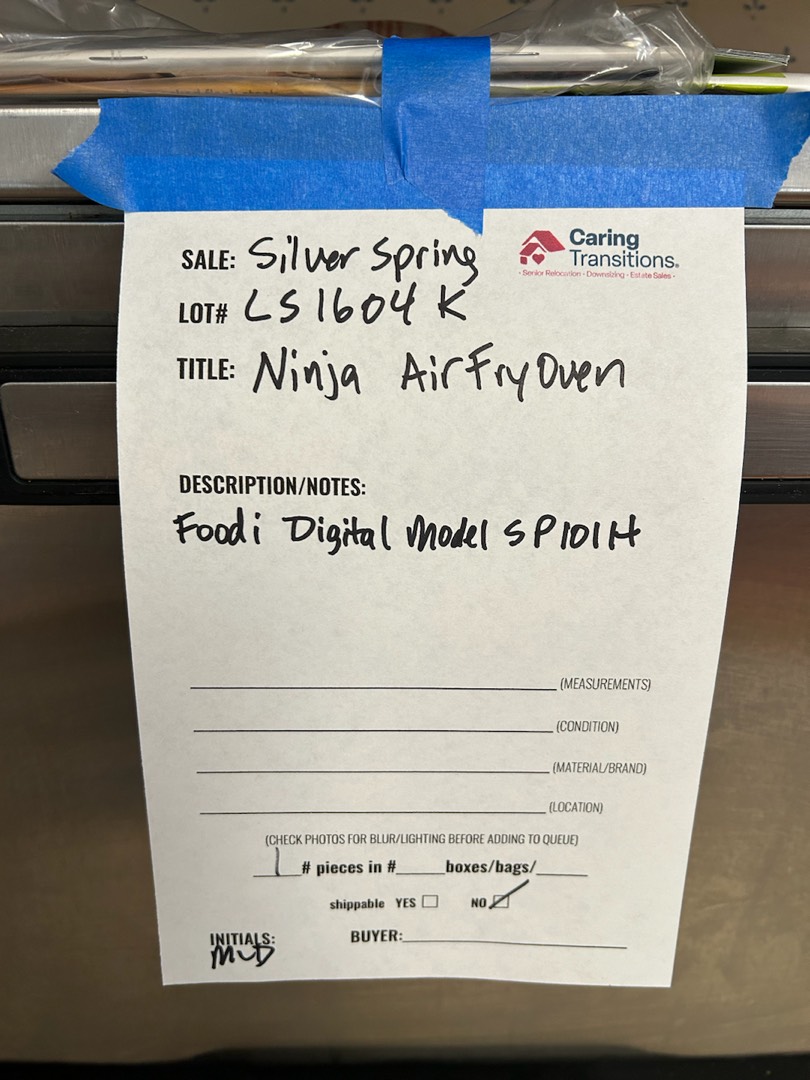 Caring
Transitions®
• Senior Relocation • Downsizing • Estate Sales •
SALE: Silver Spring
LOT# LS1604 K
TITLE: Ninja AirFryOven
DESCRIPTION/NOTES:
Foodi Digital Model SP101H
(MEASUREMENTS)
(CONDITION)
(MATERIAL/BRAND)
(LOCATION)
(CHECK PHOTOS FOR BLUR/LIGHTING BEFORE ADDING TO QUEUE)
1 # pieces in #____ boxes/bags/____
shippable YES ☐ NO ☑
INITIALS: BUYER:
MVD